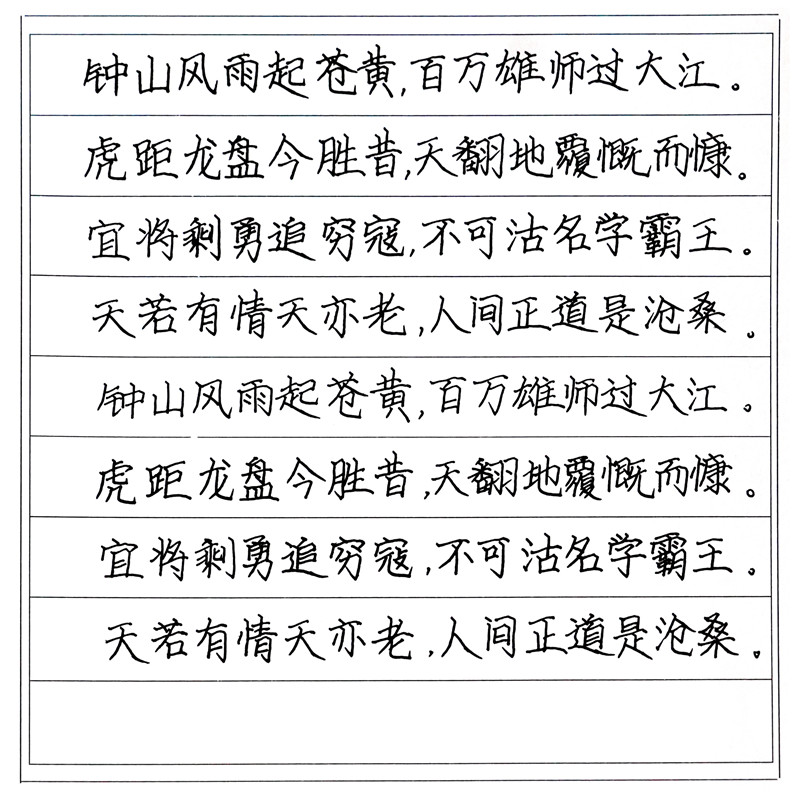 钟山风雨起苍黄,百万雄师过大江。
虎距龙盘今胜昔,天翻地覆慨而慷。
宜将剩勇追穷寇,不可沽名学霸王。
天若有情天亦老,人间正道是沧桑。
钟山风雨起苍黄,百万雄师过大江。
虎距龙盘今胜昔,天翻地覆慨而慷。
宜将剩勇追穷寇,不可沽名学霸王。
天若有情天亦老,人间正道是沧桑。